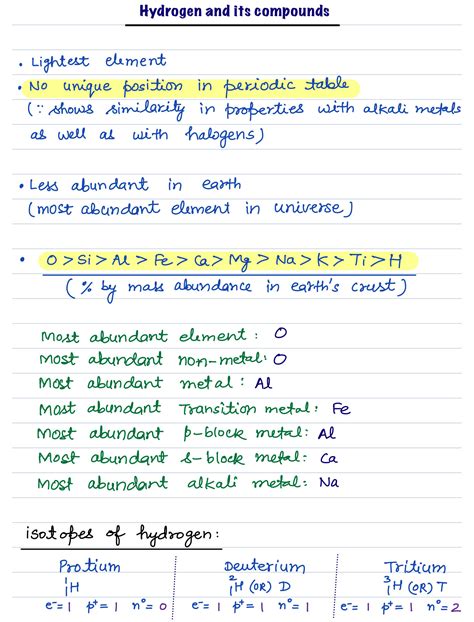 Hydrogen and its compounds
• Lightest element
• No unique position in periodic table
(∵ shows similarity in properties with alkali metals
as well as with halogens)
• Less abundant in earth
(most abundant element in universe)
• O > Si > Al > Fe > Ca > Mg > Na > K > Ti > H
(% by mass abundance in earth's crust)
Most abundant element : O
Most abundant non-metal: O
Most abundant metal : Al
Most abundant Transition metal: Fe
Most abundant p-block metal: Al
Most abundant s-block metal: Ca
Most abundant alkali metal: Na
isotopes of hydrogen:
Protium Deuterium Tritium
¹₁H ²₁H (OR) D ³₁H (OR) T
e⁻= 1 p⁺= 1 n°= 0 e⁻= 1 p⁺= 1 n°= 1 e⁻= 1 p⁺= 1 n°= 2